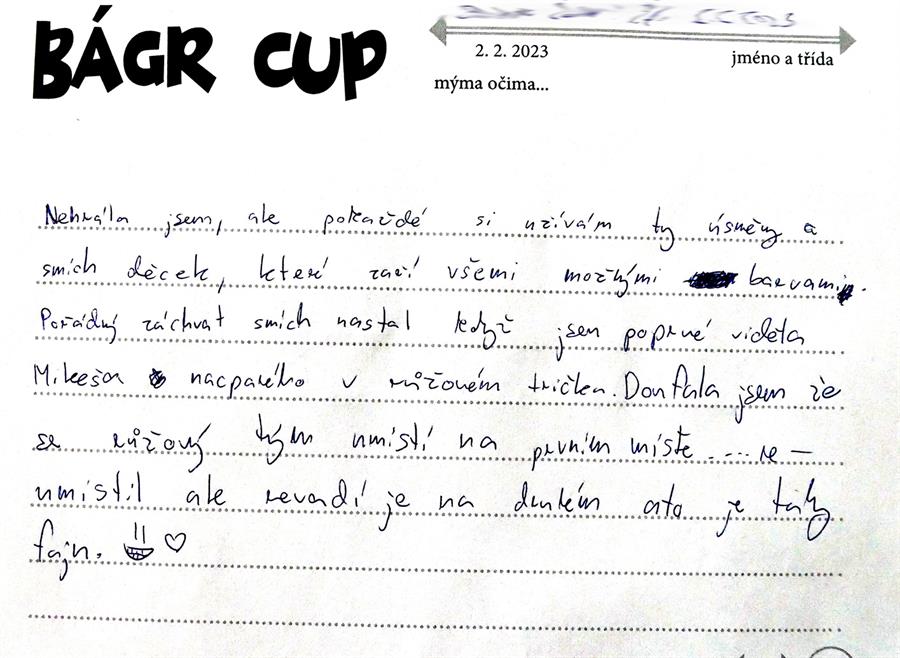 BÁGR CUP
2. 2. 2023
jméno a třída
mýma očima...
Nehrála jsem, ale pokaždé si užívám ty úsměvy a
smích děcek, které září všemi možnými barvami.
Pořádný záchvat smích nastal když jsem poprvé viděla
Mikeša nacpaného v růžovém tričku. Doufala jsem že
se růžový tým umístí na prvním místě .... ne –
umístil ale nevadí je na druhém a to je taky
fajn.